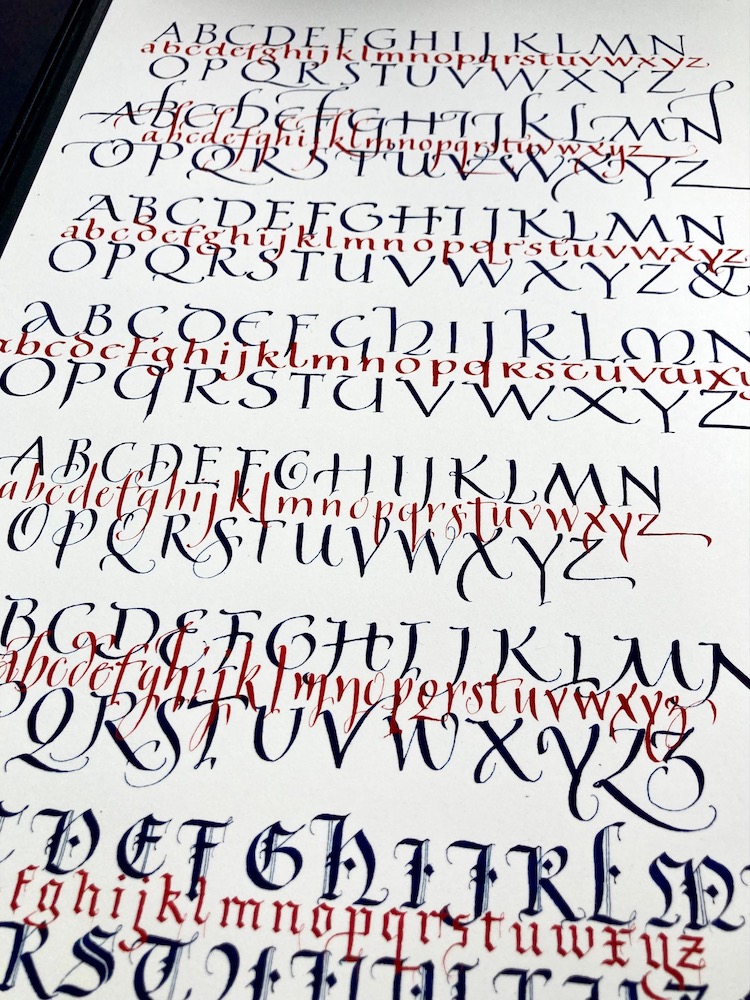 ABCDEFGHIJKLMN
abcdefghijklmnopqrstuvwxyz
OPQRSTUVWXYZ
ABCDEFGHIJKLMN
abcdefghijklmnopqrstuvwxyz
OPQRSTUVWXYZ
ABCDEFGHIJKLMN
abcdefghijklmnopqrstuvwxyz
OPQRSTUVWXYZ&
ABCDEFGHIJKLMN
abcdefghijklmnopqrstuvwxy
OPQRSTUVWXYZ
ABCDEFGHIJKLMN
abcdefghijklmnopqrstuvwxyz
OPQRSTUVWXYZ
BCDEFGHIJKLMN
abcdefghijklmnopqrstuvwxyz
PQRSTUVWXYZZ
CDEFGHIJKLM
fghijklmnopqrstuwxyz
RSTUVWXYZ